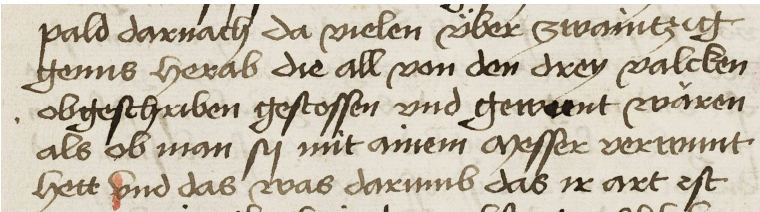 pald darnach da vielen über zwaintzigg
genns herab die all von den drey valcken
obgeschriben gestossen vnd gewent wären
als ob man sy mit ainem messer verwunt
hett vnd das was darumb das ir art ist